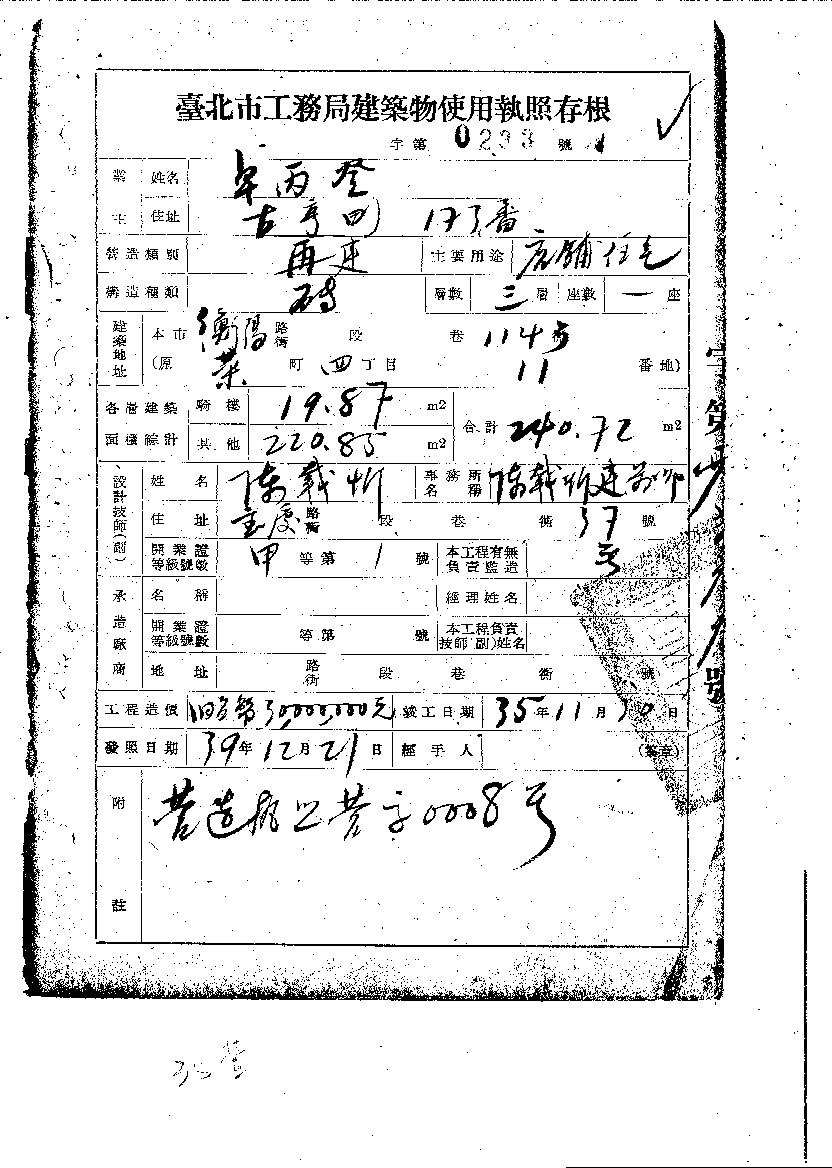 臺北市工務局建築物使用執照存根
字第 0293 號
業主 姓名
住址 古亭町 173番
營造種類 再建 主要用途 店鋪住宅
構造種類 磚 層數 三 層 座數 一 座
建築地址 本市 衡陽 路街 段 巷 114号 衖
(原 榮 町 四 丁目 11 番地)
各層建築面積綜計 騎樓 19.87 m2 合計 240.72 m2
其他 220.85 m2
設計技師(副) 姓名 陳載炘 事務所名稱 陳載炘建築師
住址 重慶 路街 段 巷 衖 37 號
開業證等級號數 甲 等第 1 號 本工程有無負責監造
承造廠商 名稱 經理姓名
開業證等級號數 等第 號 本工程負責技師(副)姓名
地址 路街 段 巷 衖 號
工程造價 旧台幣30,000,000元 竣工日期 35年11月30日
發照日期 39年12月21日 經手人 (簽章)
附註 0008号
字第 號